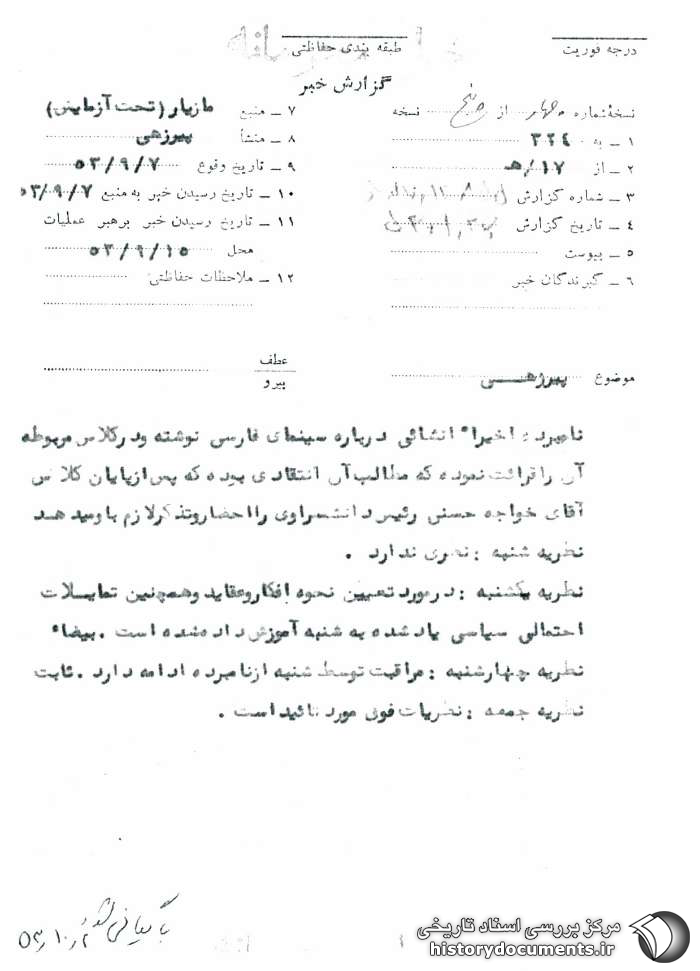 درجه فوریت
طبقه بندی حفاظتی
گزارش خبر
نسخهٔ شماره چهار از پنج نسخه
۱ ـ به ۳۲۴
۲ ـ از ۱۷/هـ
۳ ـ شماره گزارش
۴ ـ تاریخ گزارش
۵ ـ پیوست
۶ ـ گیرندگان خبر
۷ ـ منبع مازیار (تحت آزمایش)
۸ ـ منشأ پیرزهی
۹ ـ تاریخ وقوع ۵۳/۹/۷
۱۰ ـ تاریخ رسیدن خبر به منبع ۵۳/۹/۷
۱۱ ـ تاریخ رسیدن خبر برهبر عملیات
محل ۵۳/۹/۱۵
۱۲ ـ ملاحظات حفاظتی
موضوع پیرزهـــی
عطف
پیرو
نامبرده اخیرا" انشائی درباره سینمای فارسی نوشته ودرکلاس مربوطه
آن را قرائت نموده که مطالب آن انتقادی بوده که پس ازپایان کلاس
آقای خواجه حسنی رئیس دانشسراوی رااحضاروتذکرلازم باومیدهد
نظریه شنبه : نظری ندارد .
نظریه یکشنبه : درمورد تعیین نحوه افکاروعقاید وهمچنین تمایلات
احتمالی سیاسی یاد شده به شنبه آموزش داده شده است . بیضاء
نظریه چهارشنبه : مراقبت توسط شنبه ازنامبرده ادامه دارد . ثابت
نظریه جمعه : نظریات فوق مورد تائید است .
بایگانی شود
۵۳/۱۰/۲
مرکز بررسی اسناد تاریخی
historydocuments.ir